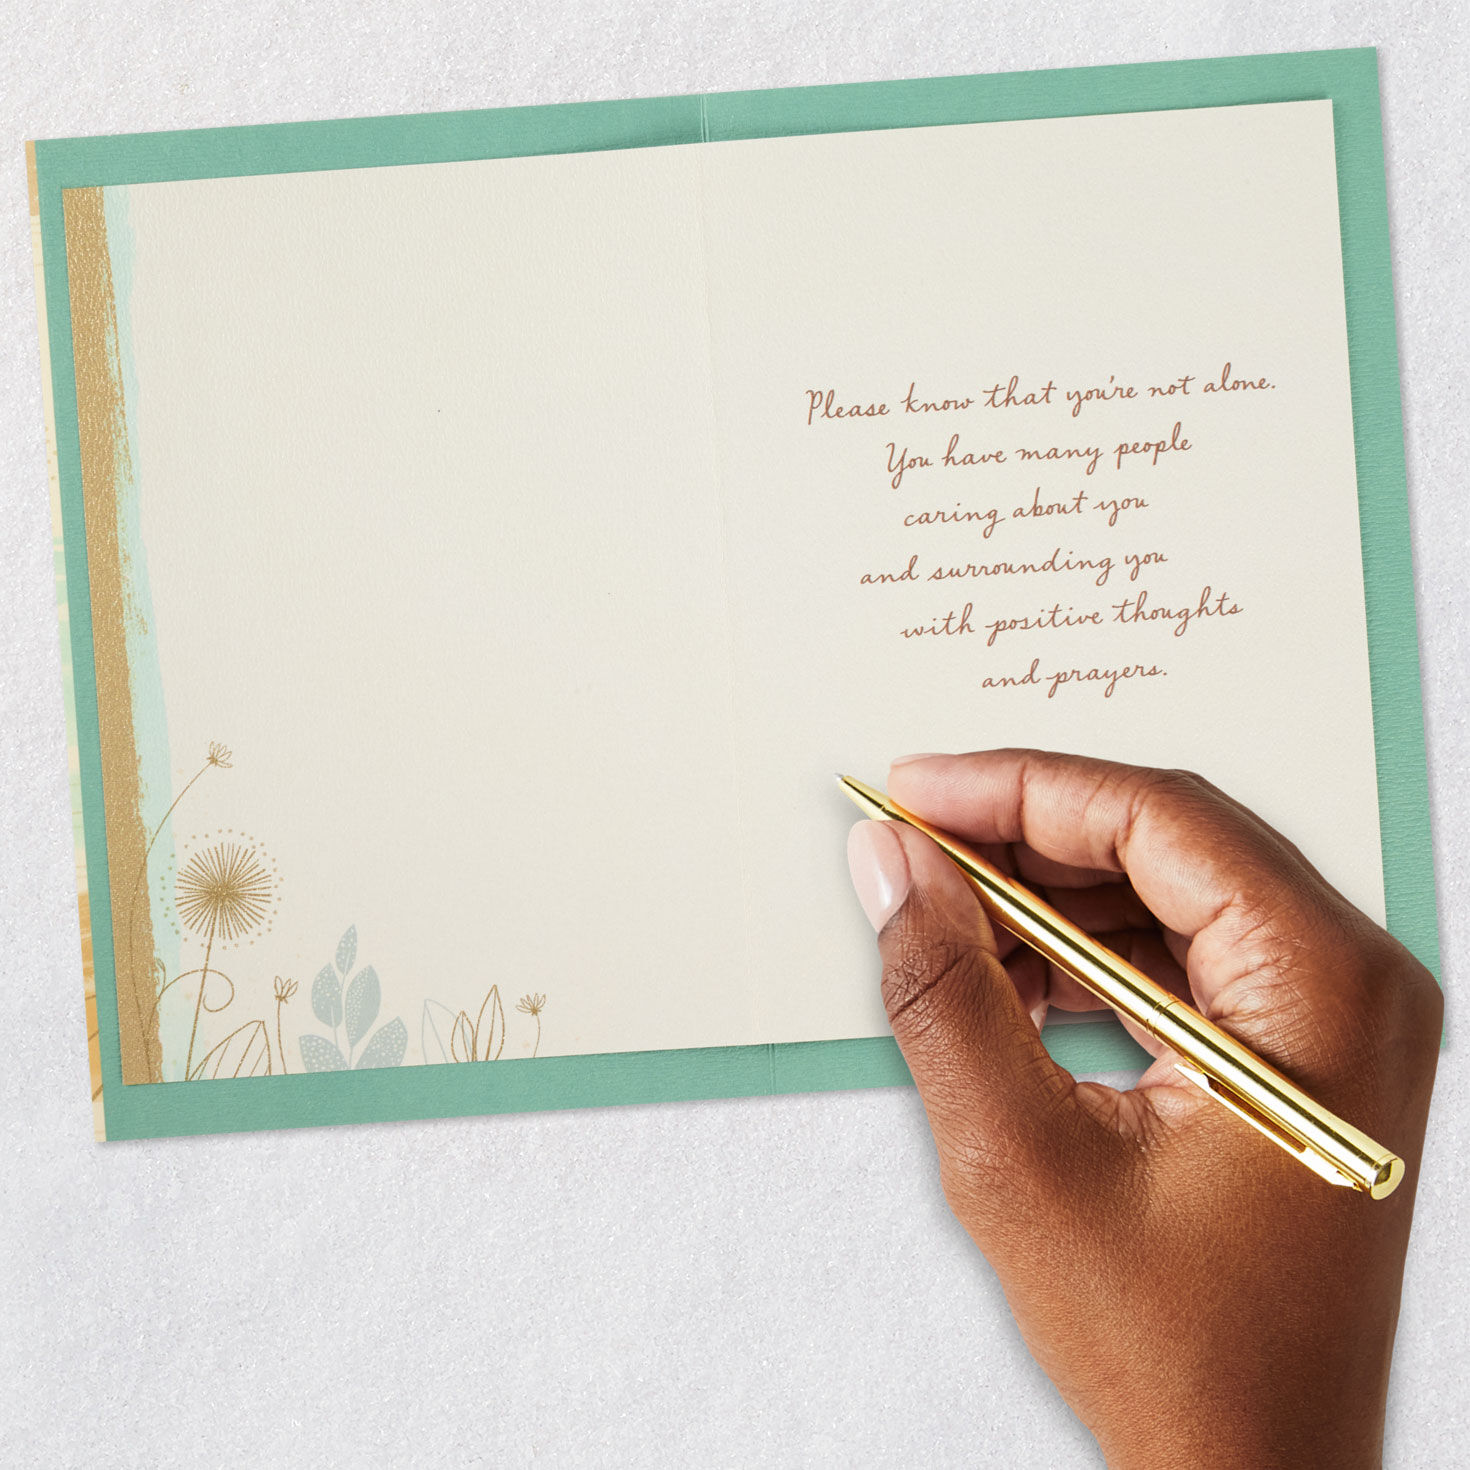 Please know that you're not alone.
You have many people
caring about you
and surrounding you
with positive thoughts
and prayers.